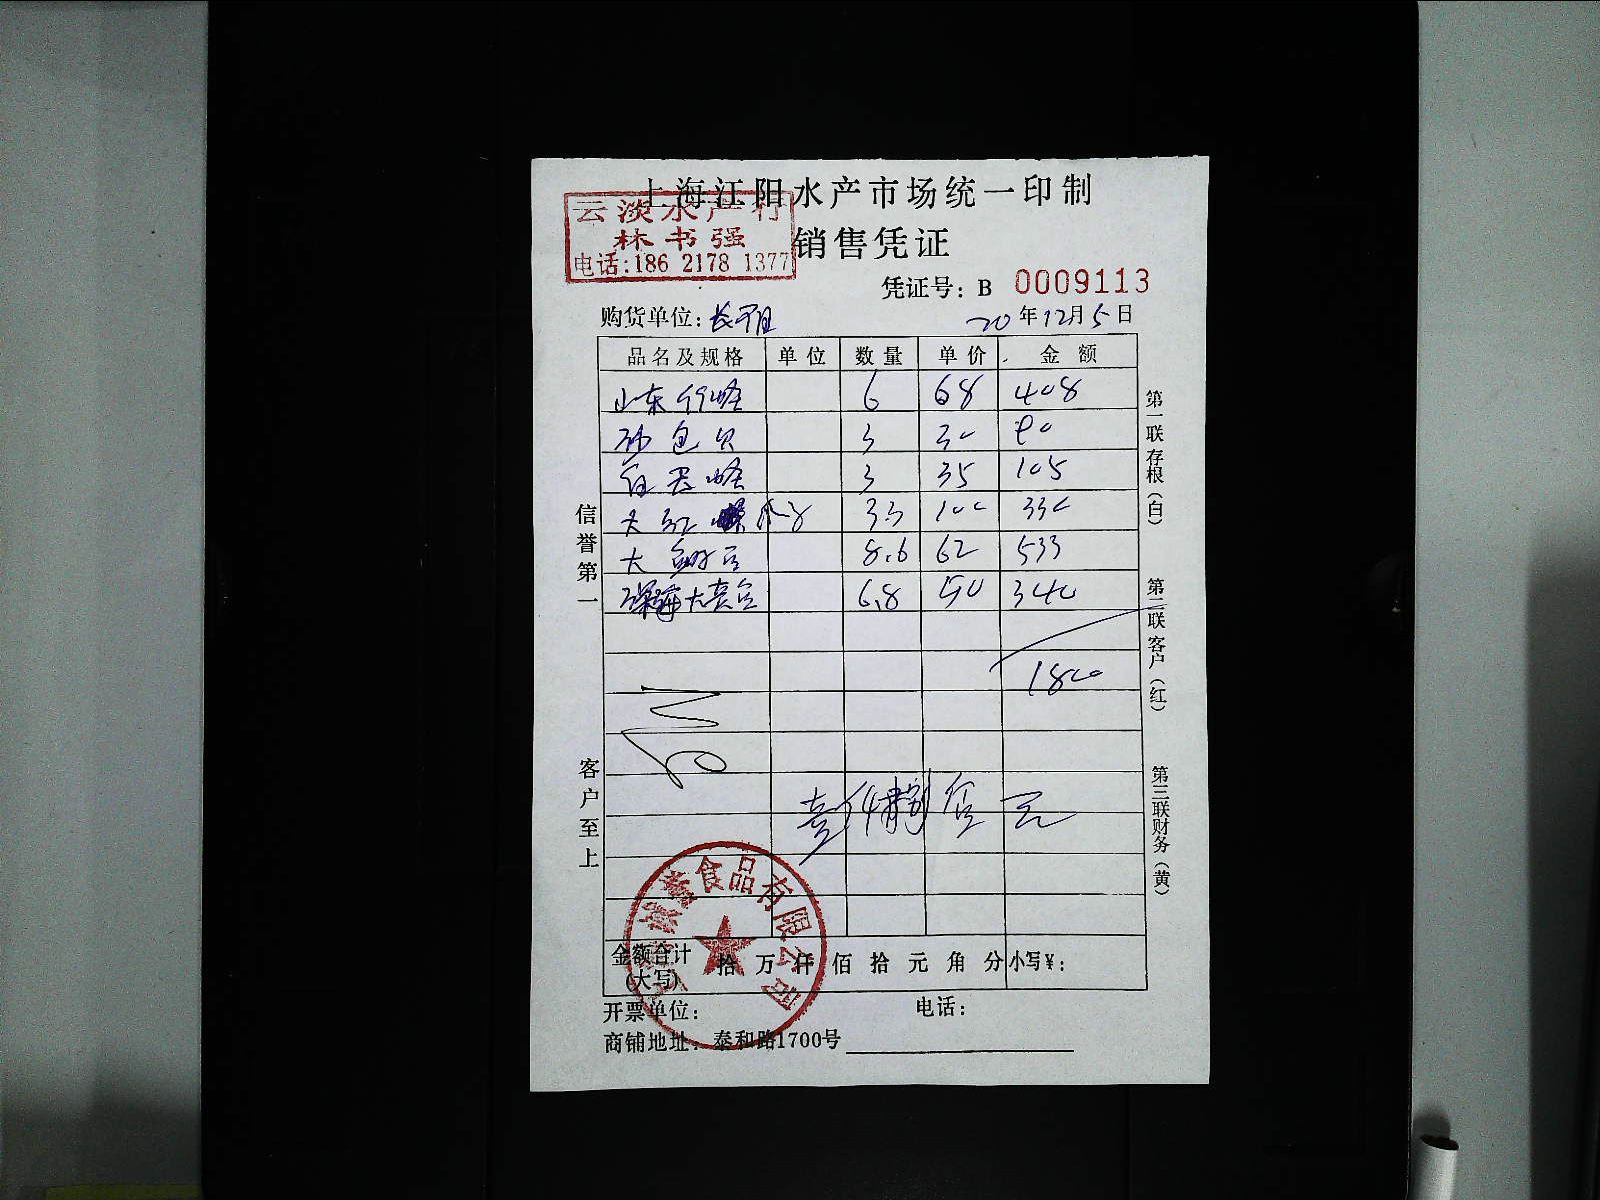 上海江阳水产市场统一印制
云淡水产行
林书强
电话:186 2178 1377
销售凭证
凭证号: B 0009113
购货单位:
20年12月5日
品名及规格 单位 数量 单价 金额
山东竹蛏 6 68 408
砂包贝 3 30 90
白 蛏 3 35 105
大红 3.3 100 330
大 8.6 62 533
深海大 6.8 50 340
1800
信誉第一
客户至上
第一联存根(白)
第二联客户(红)
第三联财务(黄)
诚誉食品有限公司
金额合计(大写) 拾 万 仟 佰 拾 元 角 分 小写¥:
开票单位: 电话:
商铺地址: 泰和路1700号